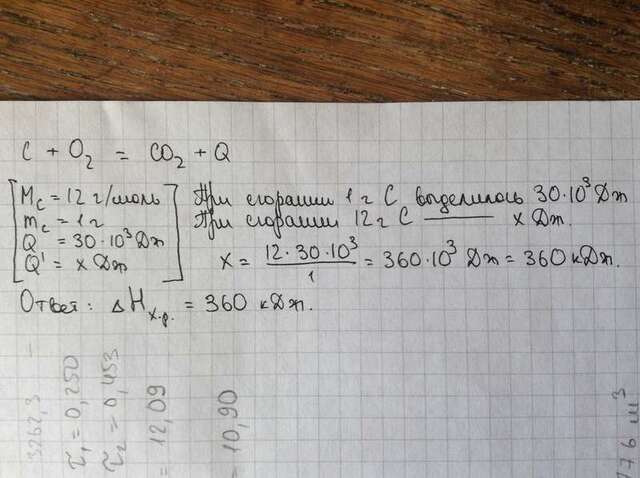 C + O₂ = CO₂ + Q
M_C = 12 г/моль
m_C = 1 г
Q = 30·10³ Дж
Q' = x Дж
При сгорании 1 г C выделилось 30·10³ Дж
При сгорании 12 г C —— x Дж.
x = 12·30·10³ / 1 = 360·10³ Дж = 360 кДж.
Ответ: ΔH х.р. = 360 кДж.
3262,3
τ₁ = 0,250
τ₂ = 0,453
= 12,09
= 10,90
176 м³